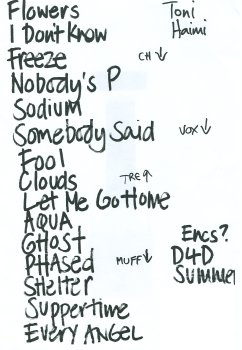 Flowers
I Don't Know
Freeze
Nobody's P
Sodium
Somebody Said
Fool
Clouds
Let Me Go Home
AQUA
GHOST
PHASED
SHELTER
Suppertime
EVERY ANGEL
Toni
Haimi
CH ↓
VOX ↓
TRE ↑
MUFF ↓
Encs?
D4D
Summer